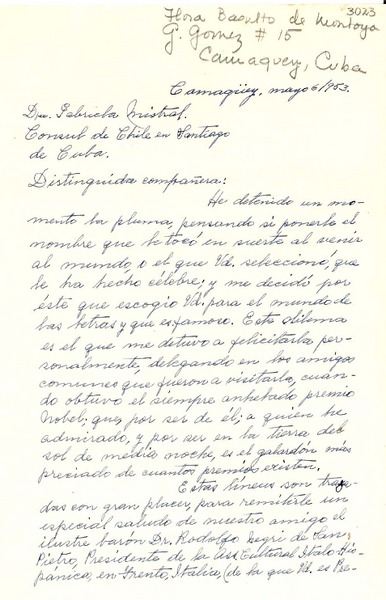 3023
Flora Basulto de Montoya
G. Gomez # 15
Camaguey, Cuba
Camagüey, mayo 6/953.
Dra. Gabriela Mistral.
Consul de Chile en Santiago
de Cuba.
Distinguida compañera:
He detenido un mo-
mento la pluma, pensando si ponerle el
nombre que le tocó en suerte al venir
al mundo, o el que Vd. seleccionó, que
le ha hecho célebre; y me decidí por
éste que escogió Vd. para el mundo de
las letras y que es famoso. Este dilema
es el que me detuvo a felicitarla per-
sonalmente, delegando en los amigos
comunes que fueron a visitarla, cuan-
do obtuvo el siempre anhelado premio
Nobel; que, por ser de él; a quien he
admirado, y por ser en la tierra del
sol de media noche, es el galardón más
preciado de cuantos premios existen.
Estas líneas son traza-
das con gran placer, para remitirle un
especial saludo de nuestro amigo el
ilustre barón Dr. Rodolfo Segri de San
Pietro, Presidente de la Asc. Cultural Italo-His-
pánica, en Trento, Italia, (de la que Vd. es Pre-